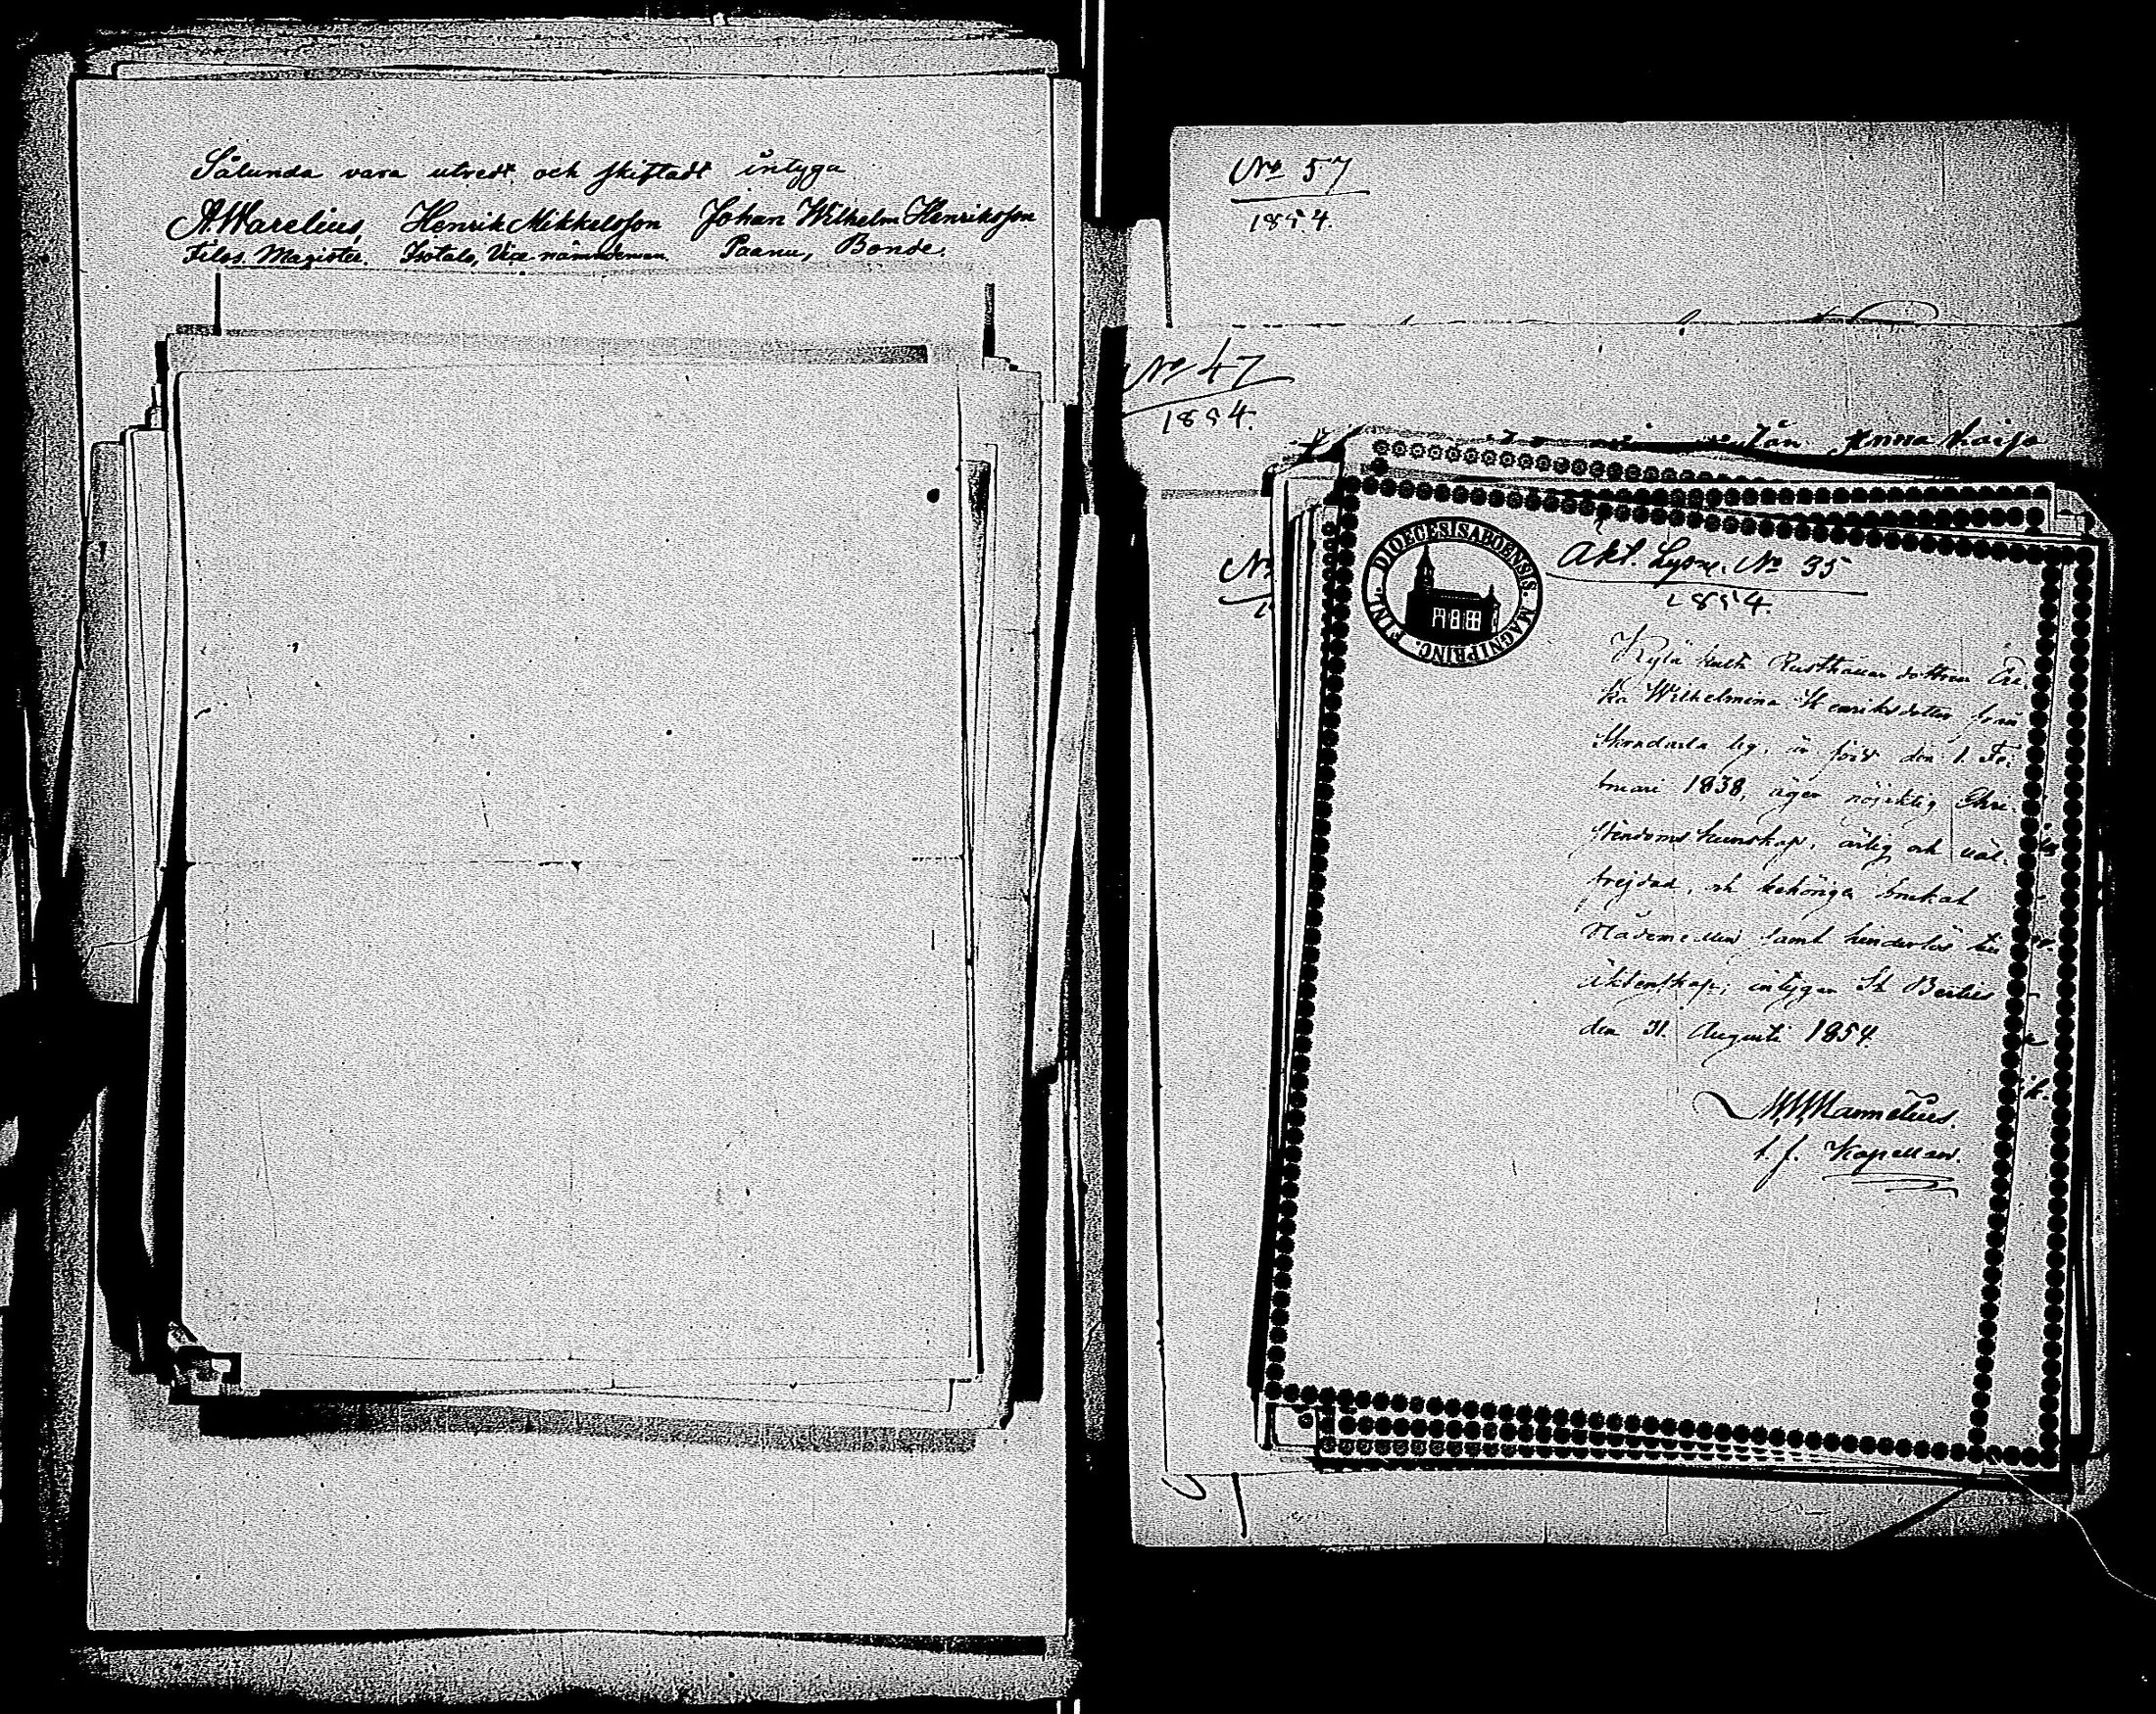 Sålunda vara utredt och skiftadt intyga
A. Warelius, Henrik Mikkelsson Johan Wilhelm Henriksson
Filos. Magister. Isotalo, Vice nämndeman. Paanu, Bonde.
No 57
1854.
No 47
1854.
Anna Kaisa
No
DIOECESIS ABOENSIS. MAGNI PRINC. FINL.
Akt. Lysn. No 35
1854.
Kylä Rusthållar dottren
Wilhelmina Henriksdotter från
lig. är född den 1. Fe-
bruari 1838, äger nöjaktig Chri-
stendoms kunskap, ärlig och väl-
frejdad, och behörigen brukat
Nådemedlen samt hinderlös till
äktenskap; intygar St Bertils
den 31. Augusti 1854.
Mannelius.
t. f. Kapellan.